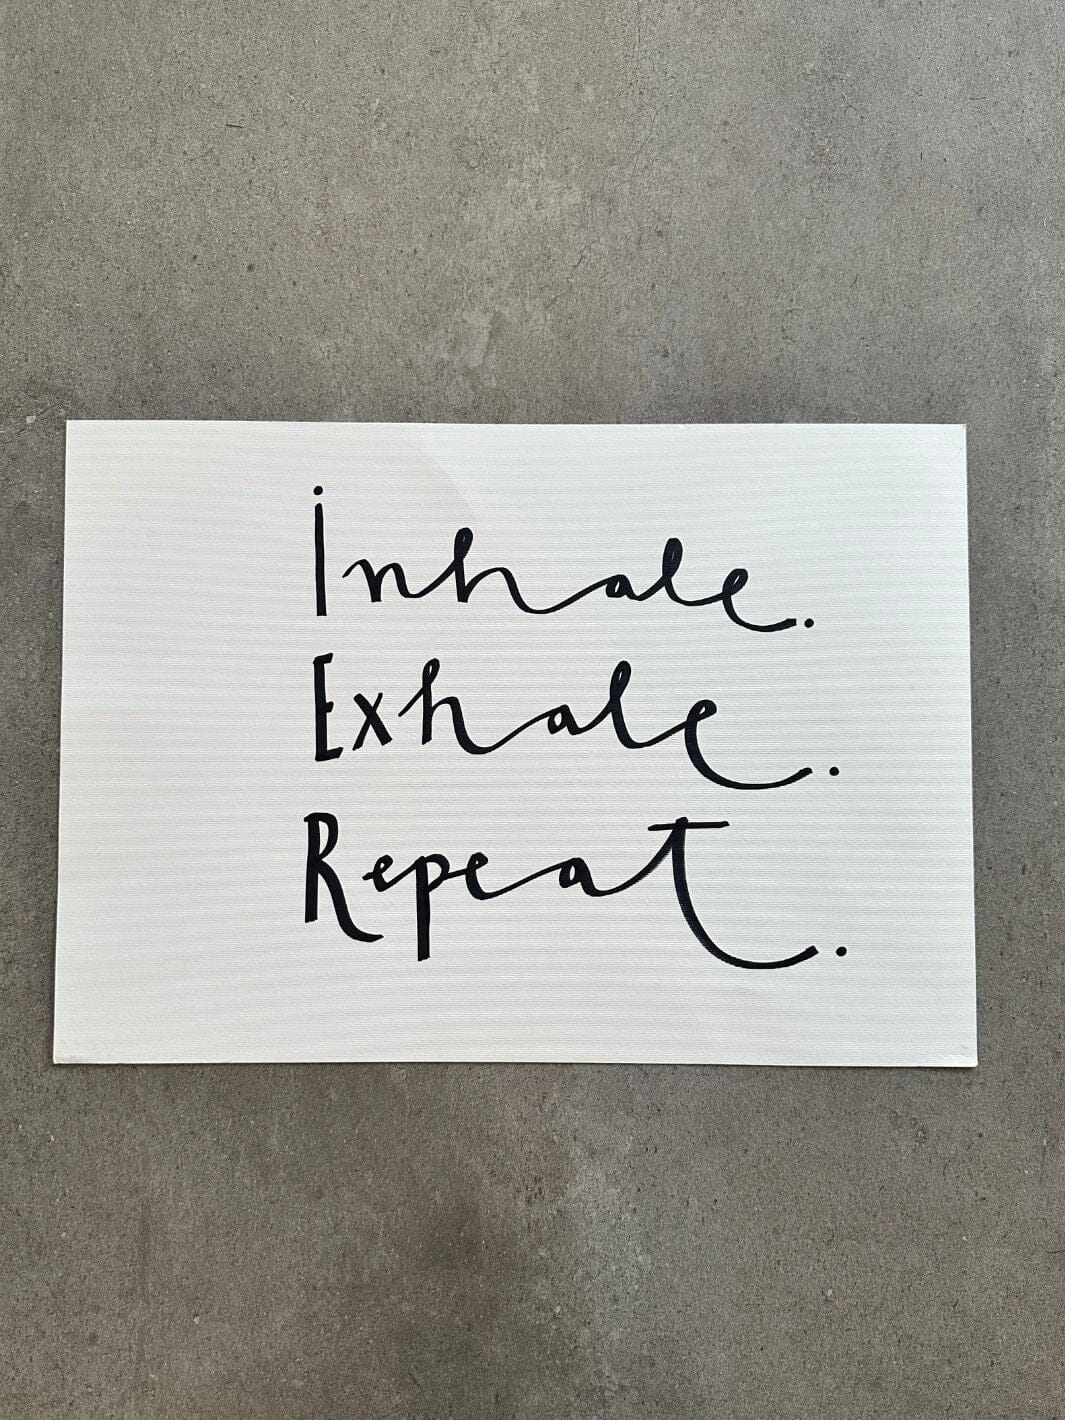 inhale.
Exhale.
Repeat.